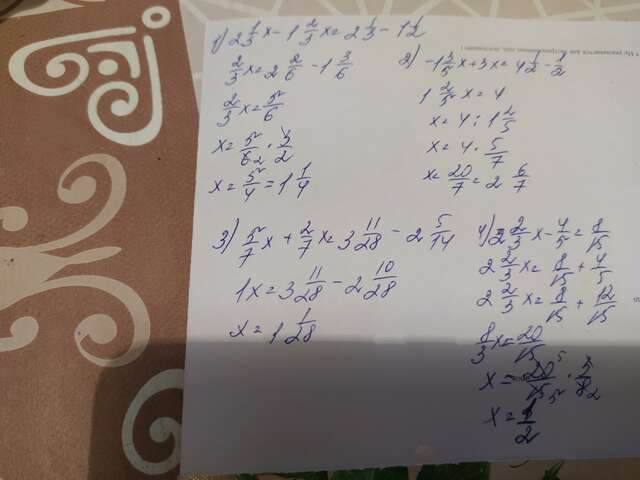 1) 2 1/3 x - 1 2/3 x = 2 1/3 - 1 1/2
2/3 x = 2 2/6 - 1 3/6
2/3 x = 5/6
x = 5/6 2 · 3/2
x = 5/4 = 1 1/4
2) -1 3/5 x + 3x = 4 1/2 - 1/2
1 2/5 x = 4
x = 4 : 1 2/5
x = 4 · 5/7
x = 20/7 = 2 6/7
3) 5/7 x + 2/7 x = 3 11/28 - 2 5/14
1x = 3 11/28 - 2 10/28
x = 1 1/28
4) 2 2/3 x - 4/5 = 8/15
2 2/3 x = 8/15 + 4/5
2 2/3 x = 8/15 + 12/15
8/3 x = 20/15
x = 20 5/15 5 · 3/8 2
x = 1/2